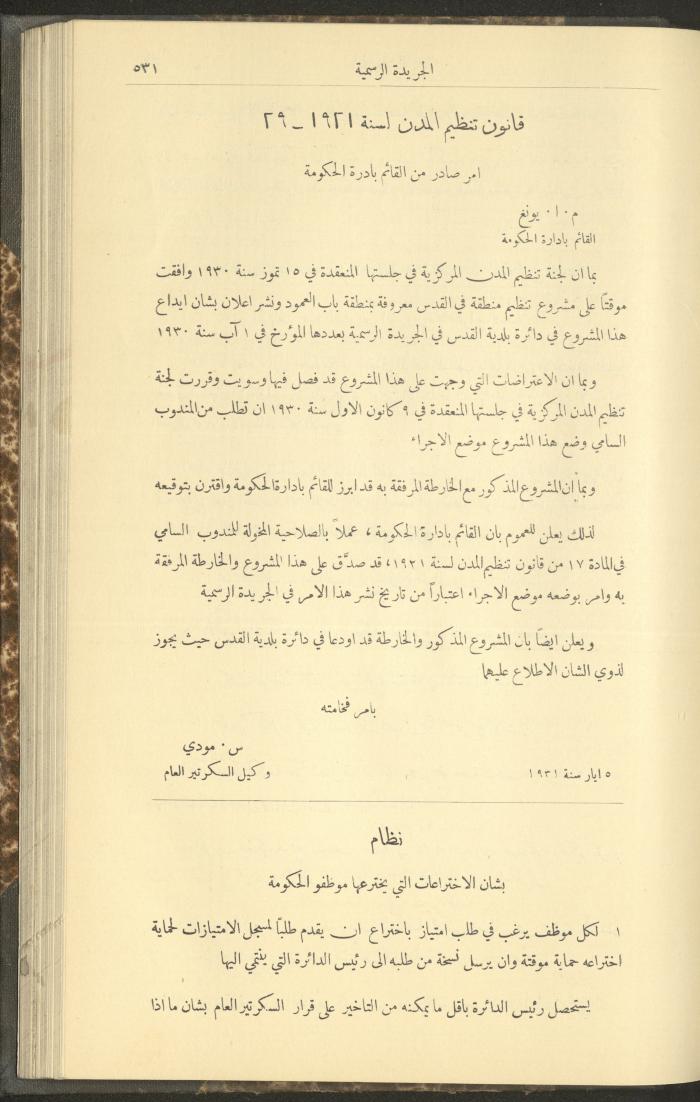 الجريدة الرسمية ٥٣١
قانون تنظيم المدن لسنة ١٩٢١ ــ ٢٩
امر صادر من القائم بادرة الحكومة
م ٠ ا ٠ يونغ
القائم بادارة الحكومة
بما ان لجنة تنظيم المدن المركزية في جلستها المنعقدة في ١٥ تموز سنة ١٩٣٠ وافقت
موقتاً على مشروع تنظيم منطقة في القدس معروفة بمنطقة باب العمود ونشر اعلان بشان ايداع
هذا المشروع في دائرة بلدية القدس في الجريدة الرسمية بعددها المؤرخ في ١ آب سنة ١٩٣٠
وبما ان الاعتراضات التي وجهت على هذا المشروع قد فصل فيها وسويت وقررت لجنة
تنظيم المدن المركزية في جلستها المنعقدة في ٩ كانون الاول سنة ١٩٣٠ ان تطلب من المندوب
السامي وضع هذا المشروع موضع الاجراء
وبما ان المشروع المذكور مع الخارطة المرفقة به قد ابرز للقائم بادارة الحكومة واقترن بتوقيعه
لذلك يعلن للعموم بان القائم بادارة الحكومة ، عملاً بالصلاحية المخولة للمندوب السامي
في المادة ١٧ من قانون تنظيم المدن لسنة ١٩٢١، قد صدَّق على هذا المشروع والخارطة المرفقة
به وامر بوضعه موضع الاجراء اعتباراً من تاريخ نشر هذا الامر في الجريدة الرسمية
ويعلن ايضاً بان المشروع المذكور والخارطة قد اودعا في دائرة بلدية القدس حيث يجوز
لذوي الشان الاطلاع عليهما
بامر فخامته
س ٠ مودي
٥ ايار سنة ١٩٣١ وكيل السكرتير العام
نظام
بشان الاختراعات التي يخترعها موظفو الحكومة
١ لكل موظف يرغب في طلب امتياز باختراع ان يقدم طلباً لمسجل الامتيازات لحماية
اختراعه حماية موقتة وان يرسل نسخة من طلبه الى رئيس الدائرة التي ينتمي اليها
يستحصل رئيس الدائرة باقل ما يمكنه من التاخير على قرار السكرتير العام بشان ما اذا